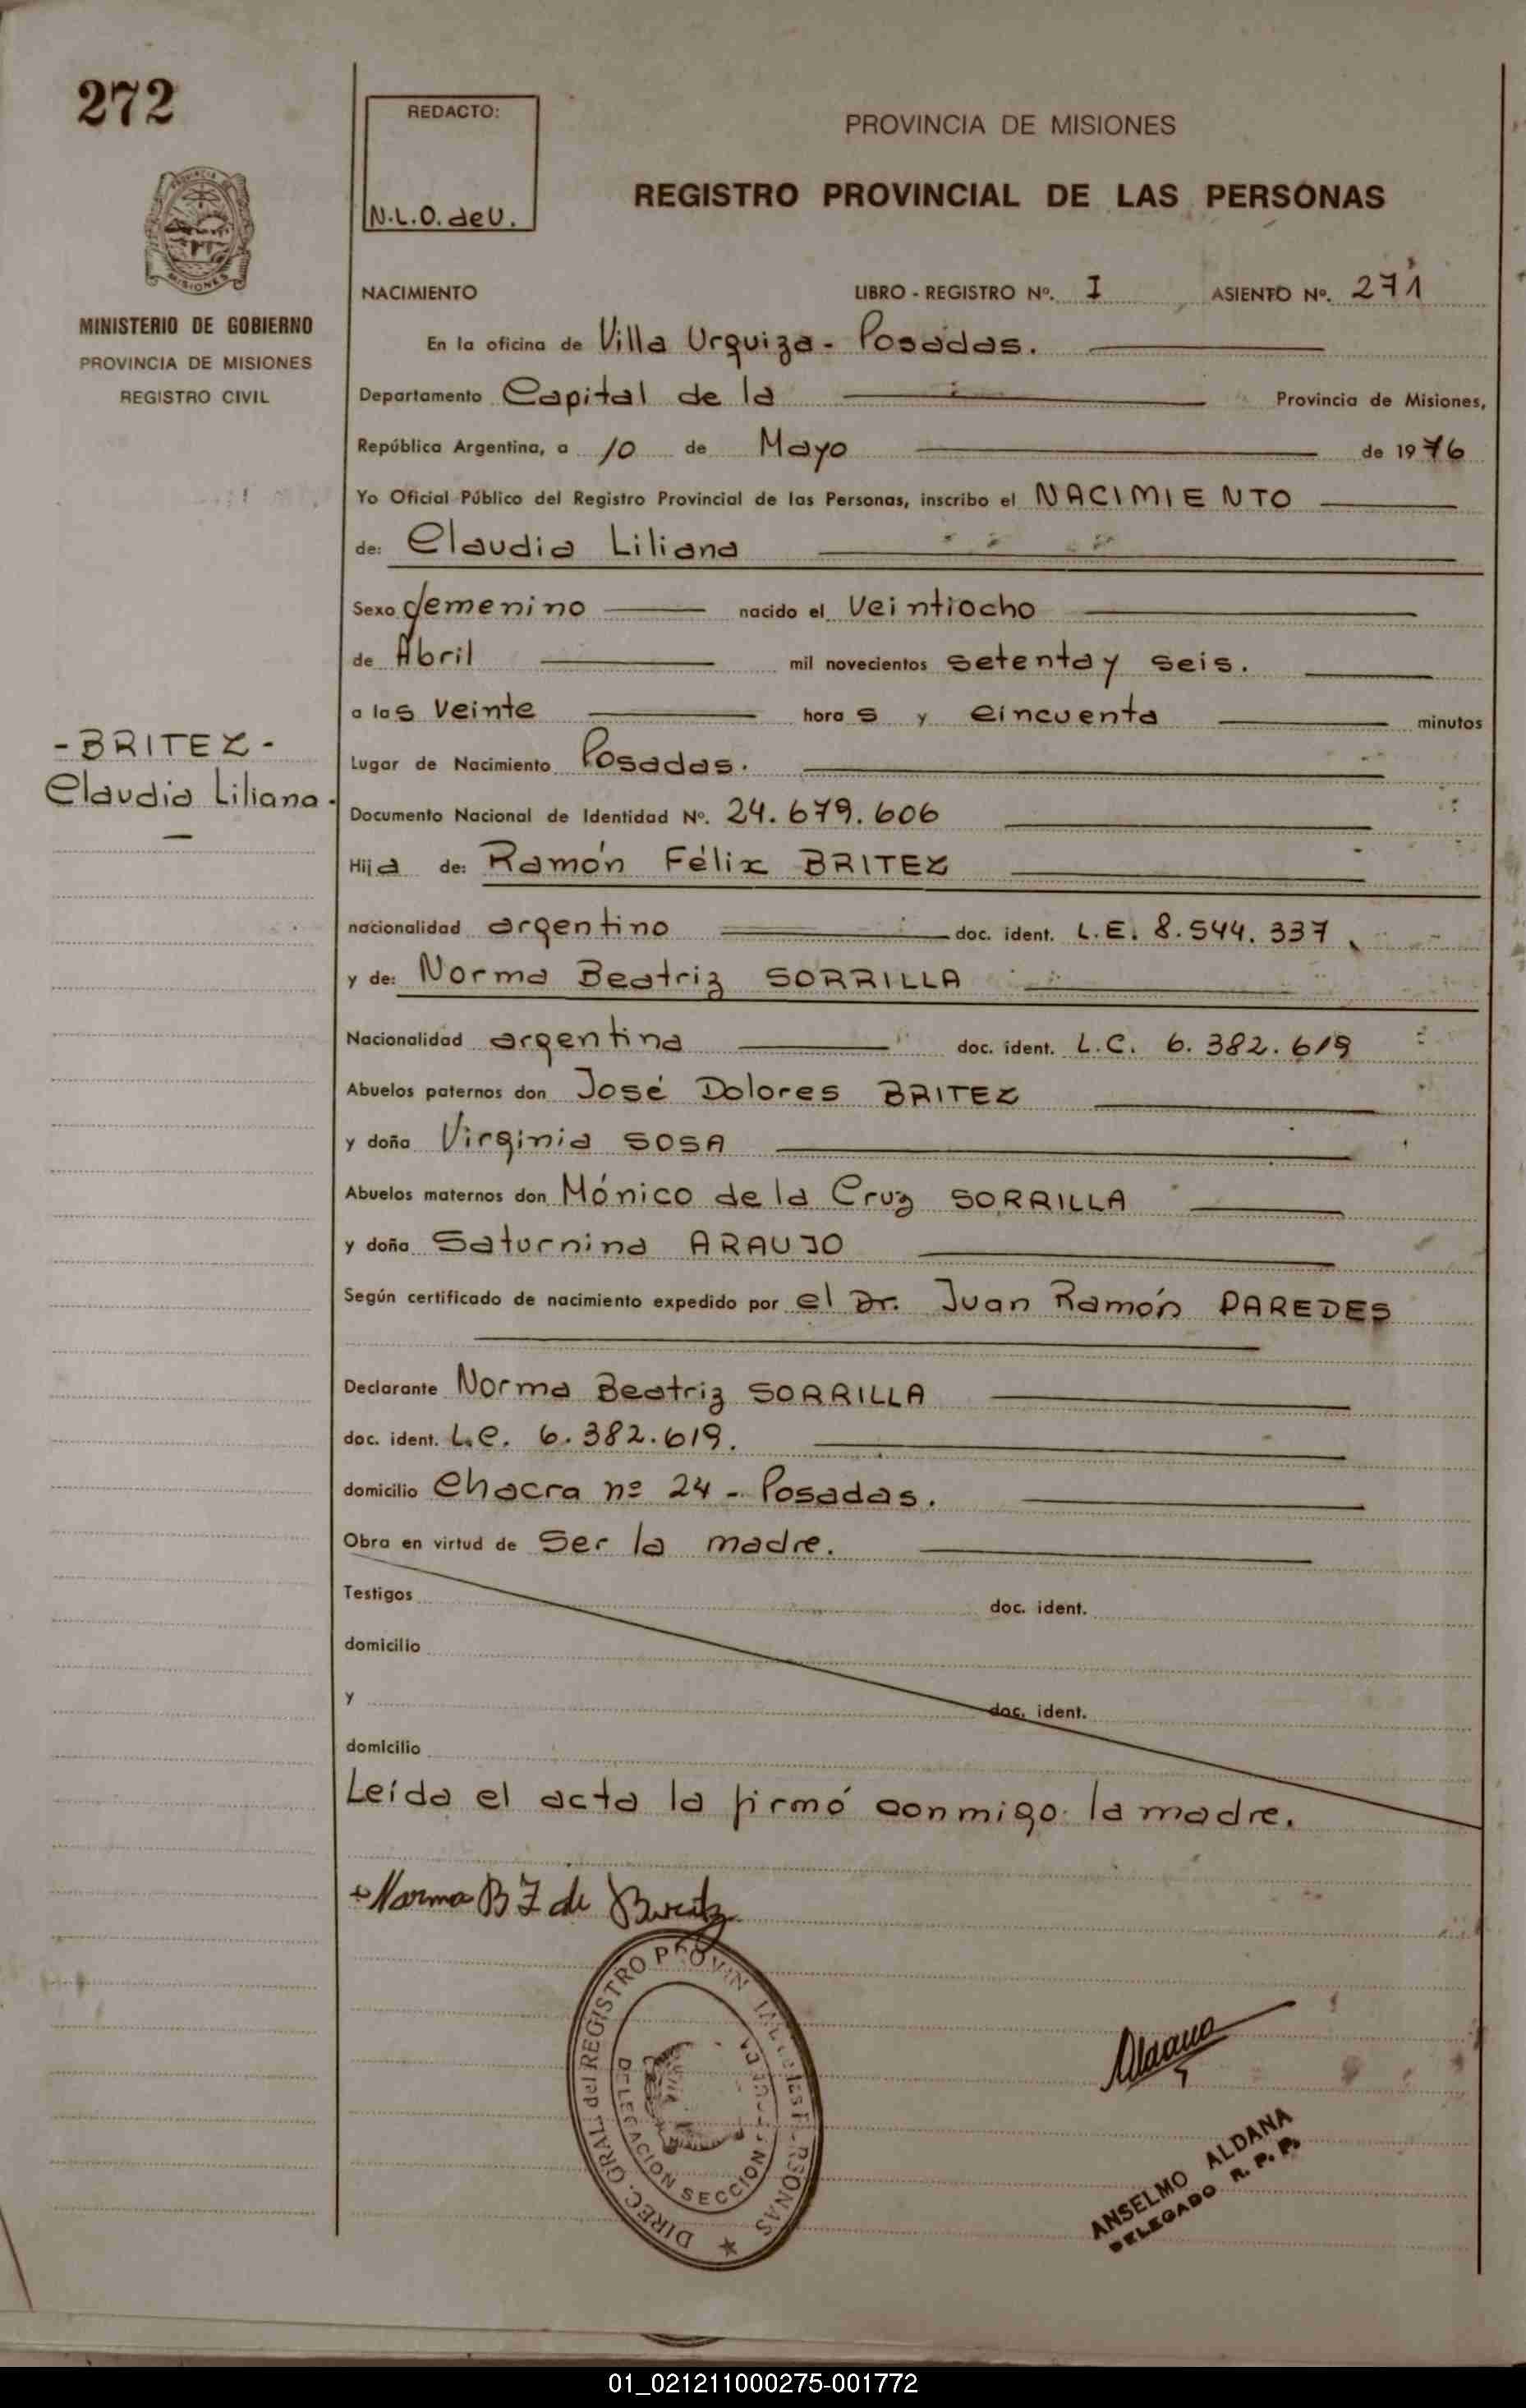 272
REDACTO:
N.L.O. de U.
PROVINCIA DE MISIONES
REGISTRO PROVINCIAL DE LAS PERSONAS
MISIONES
MINISTERIO DE GOBIERNO
PROVINCIA DE MISIONES
REGISTRO CIVIL
NACIMIENTO LIBRO - REGISTRO Nº. I ASIENTO Nº. 271
En la oficina de Villa Urquiza - Posadas.
Departamento Capital de la Provincia de Misiones,
República Argentina, a 10 de Mayo de 1976
Yo Oficial Público del Registro Provincial de las Personas, inscribo el NACIMIENTO
de: Claudia Liliana
Sexo femenino nacido el Veintiocho
de Abril mil novecientos setenta y seis.
a las veinte horas y cincuenta minutos
- BRITEZ -
Claudia Liliana.
Lugar de Nacimiento Posadas.
Documento Nacional de Identidad Nº. 24.679.606
Hija de: Ramón Félix BRITEZ
nacionalidad argentino doc. ident. L.E. 8.544.337
y de: Norma Beatriz SORRILLA
Nacionalidad argentina doc. ident. L.C. 6.382.619
Abuelos paternos don José Dolores BRITEZ
y doña Virginia SOSA
Abuelos maternos don Mónico de la Cruz SORRILLA
y doña Saturnina ARAUJO
Según certificado de nacimiento expedido por el Dr. Juan Ramón PAREDES
Declarante Norma Beatriz SORRILLA
doc. ident. L.C. 6.382.619.
domicilio Chacra nº 24 - Posadas.
Obra en virtud de Ser la madre.
Testigos doc. ident.
domicilio
y doc. ident.
domicilio
Leída el acta la firmó conmigo la madre.
Norma B Z de Britez
DIREC. GRAL. del REGISTRO PROVINCIAL de las PERSONAS
DELEGACION SECCION
Aldana
ANSELMO ALDANA
DELEGADO R. P. P.
01_021211000275-001772